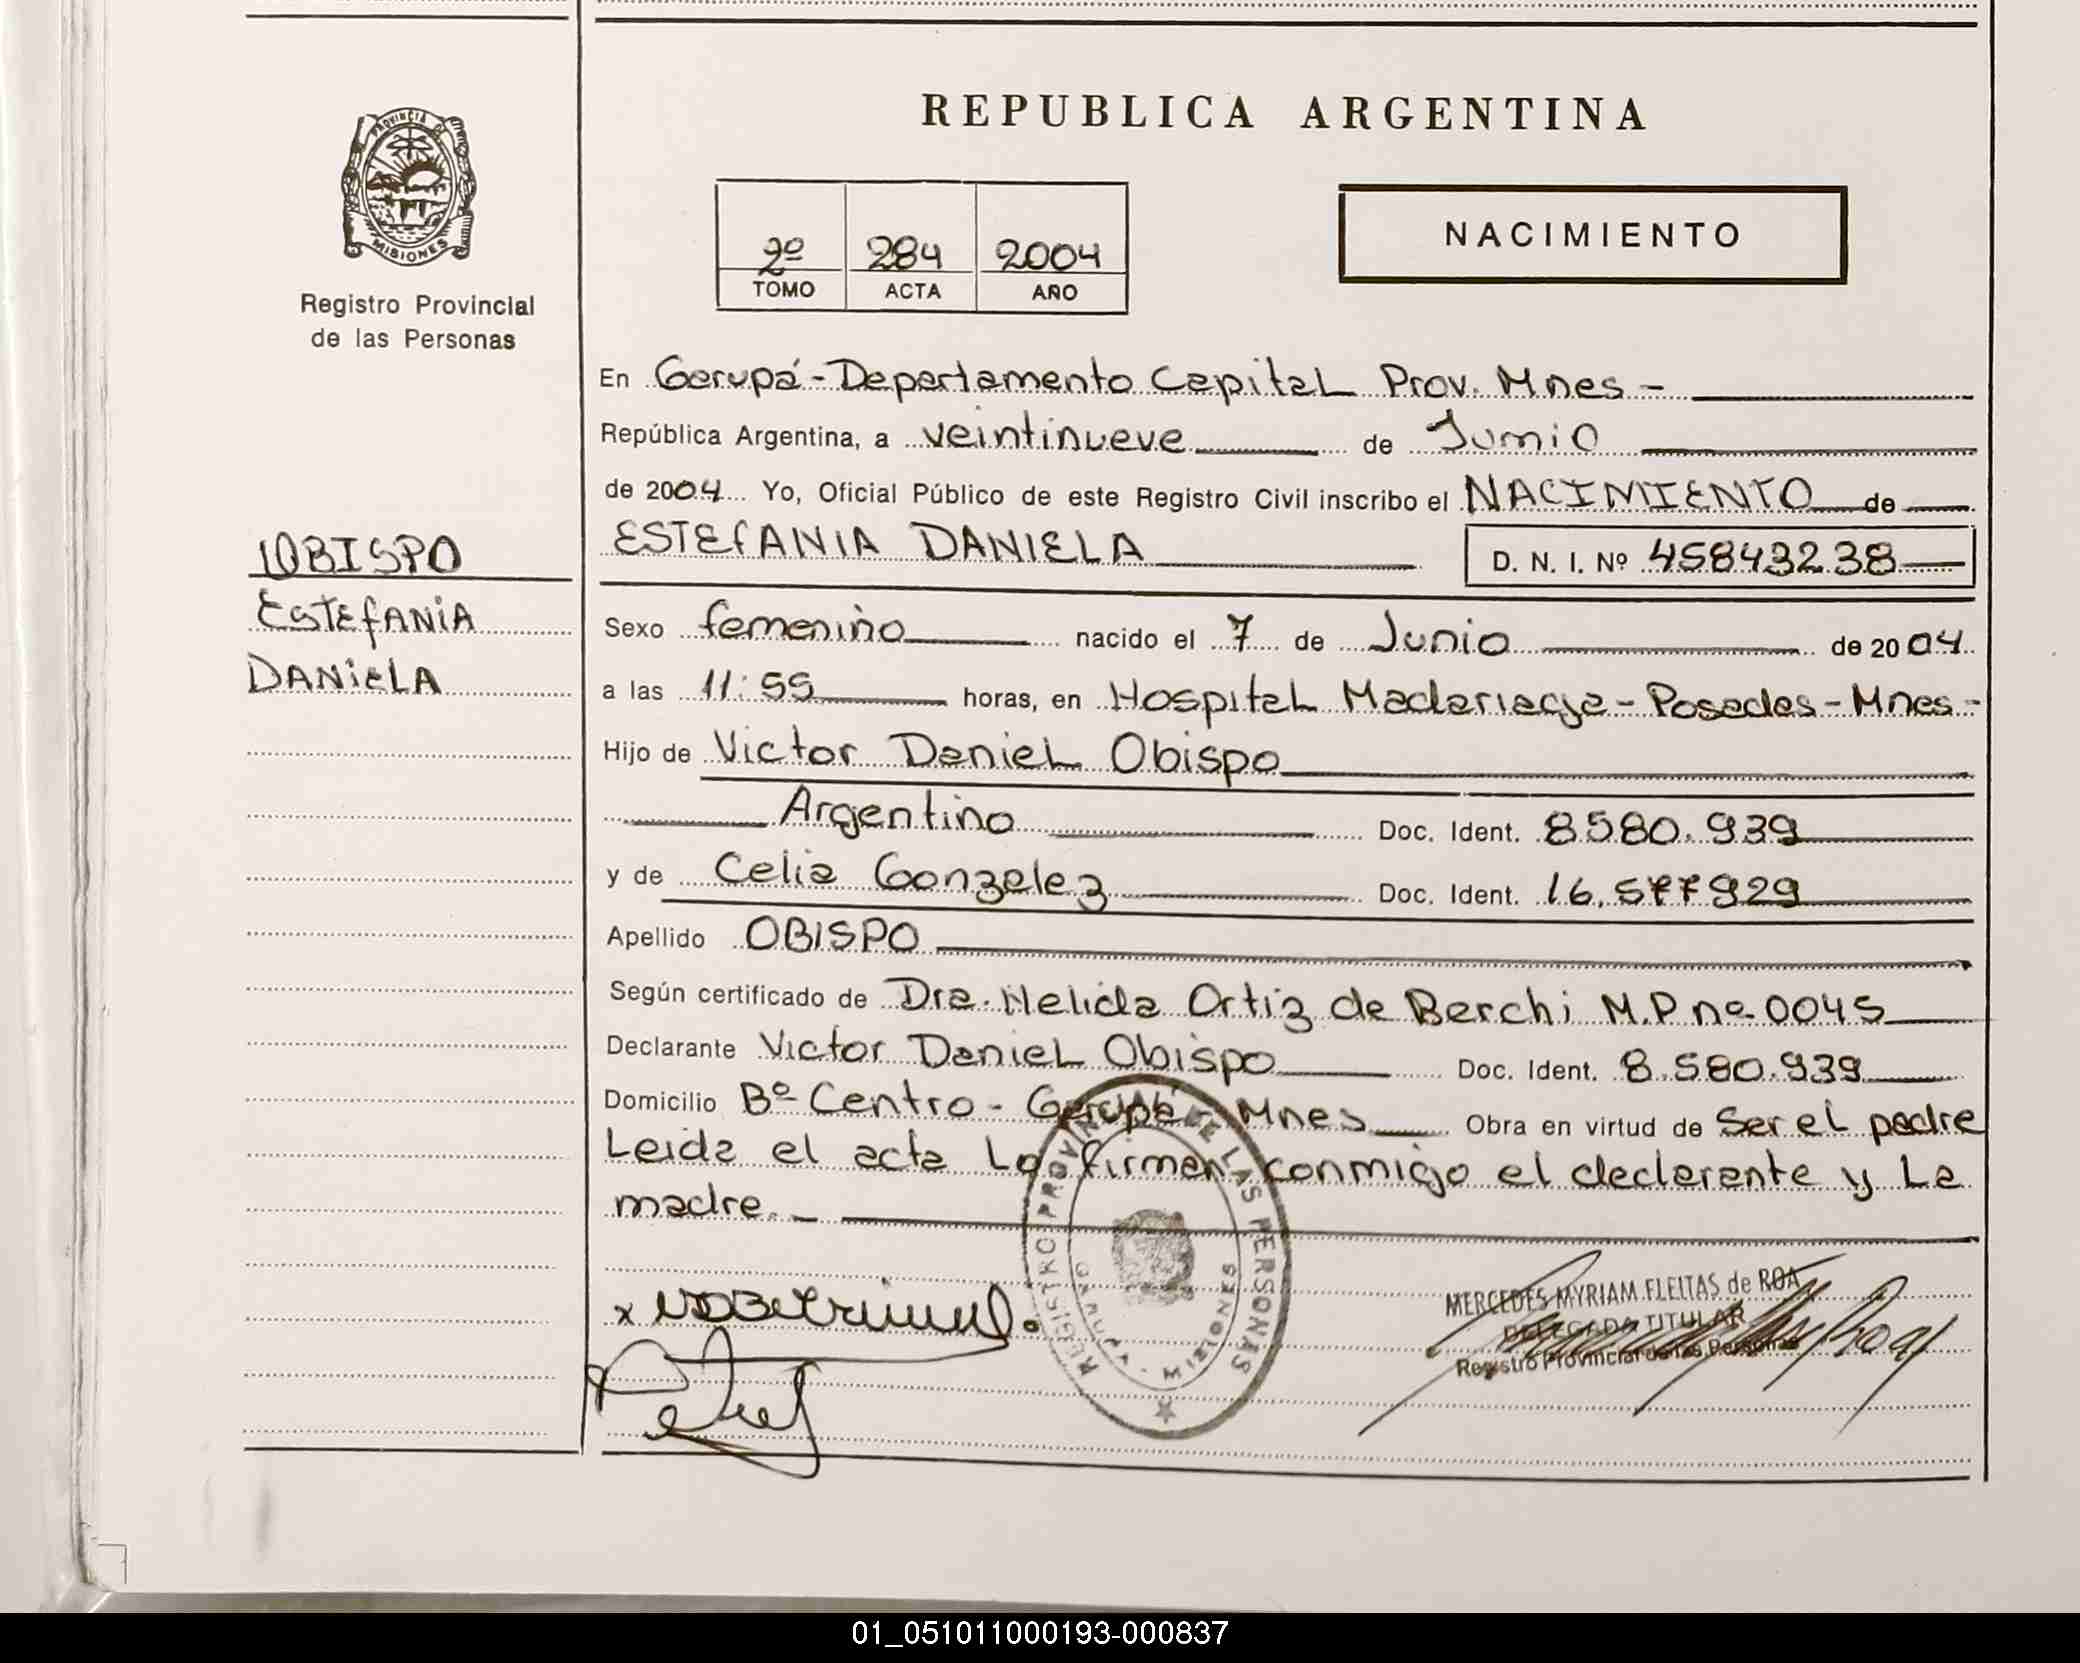 REPUBLICA ARGENTINA
PROVINCIA DE
MISIONES
Registro Provincial
de las Personas
2º 284 2004
TOMO ACTA AÑO
NACIMIENTO
En Garupá - Departamento Capital Prov. Mnes -
República Argentina, a veintinueve de Junio
de 2004 Yo, Oficial Público de este Registro Civil inscribo el NACIMIENTO de
OBISPO
ESTEFANIA
DANIELA
ESTEFANIA DANIELA D. N. I. Nº 45843238
Sexo femenino nacido el 7 de Junio de 2004
a las 11:55 horas, en Hospital Madariaga - Posadas - Mnes -
Hijo de Victor Daniel Obispo
Argentino Doc. Ident. 8580.939
y de Celia Gonzalez Doc. Ident. 16.577929
Apellido OBISPO
Según certificado de Dra. Nelida Ortiz de Berchi M.P nº 0045
Declarante Victor Daniel Obispo Doc. Ident. 8.580.939
Domicilio Bº Centro - Garupá - Mnes Obra en virtud de Ser el padre
Leida el acta La firman conmigo el declarante y La
madre. -
REGISTRO PROVINCIAL DE LAS PERSONAS
MISIONES
MERCEDES MYRIAM FLEITAS de ROA
DELEGADA TITULAR
Registro Provincial de las Personas
01_051011000193-000837